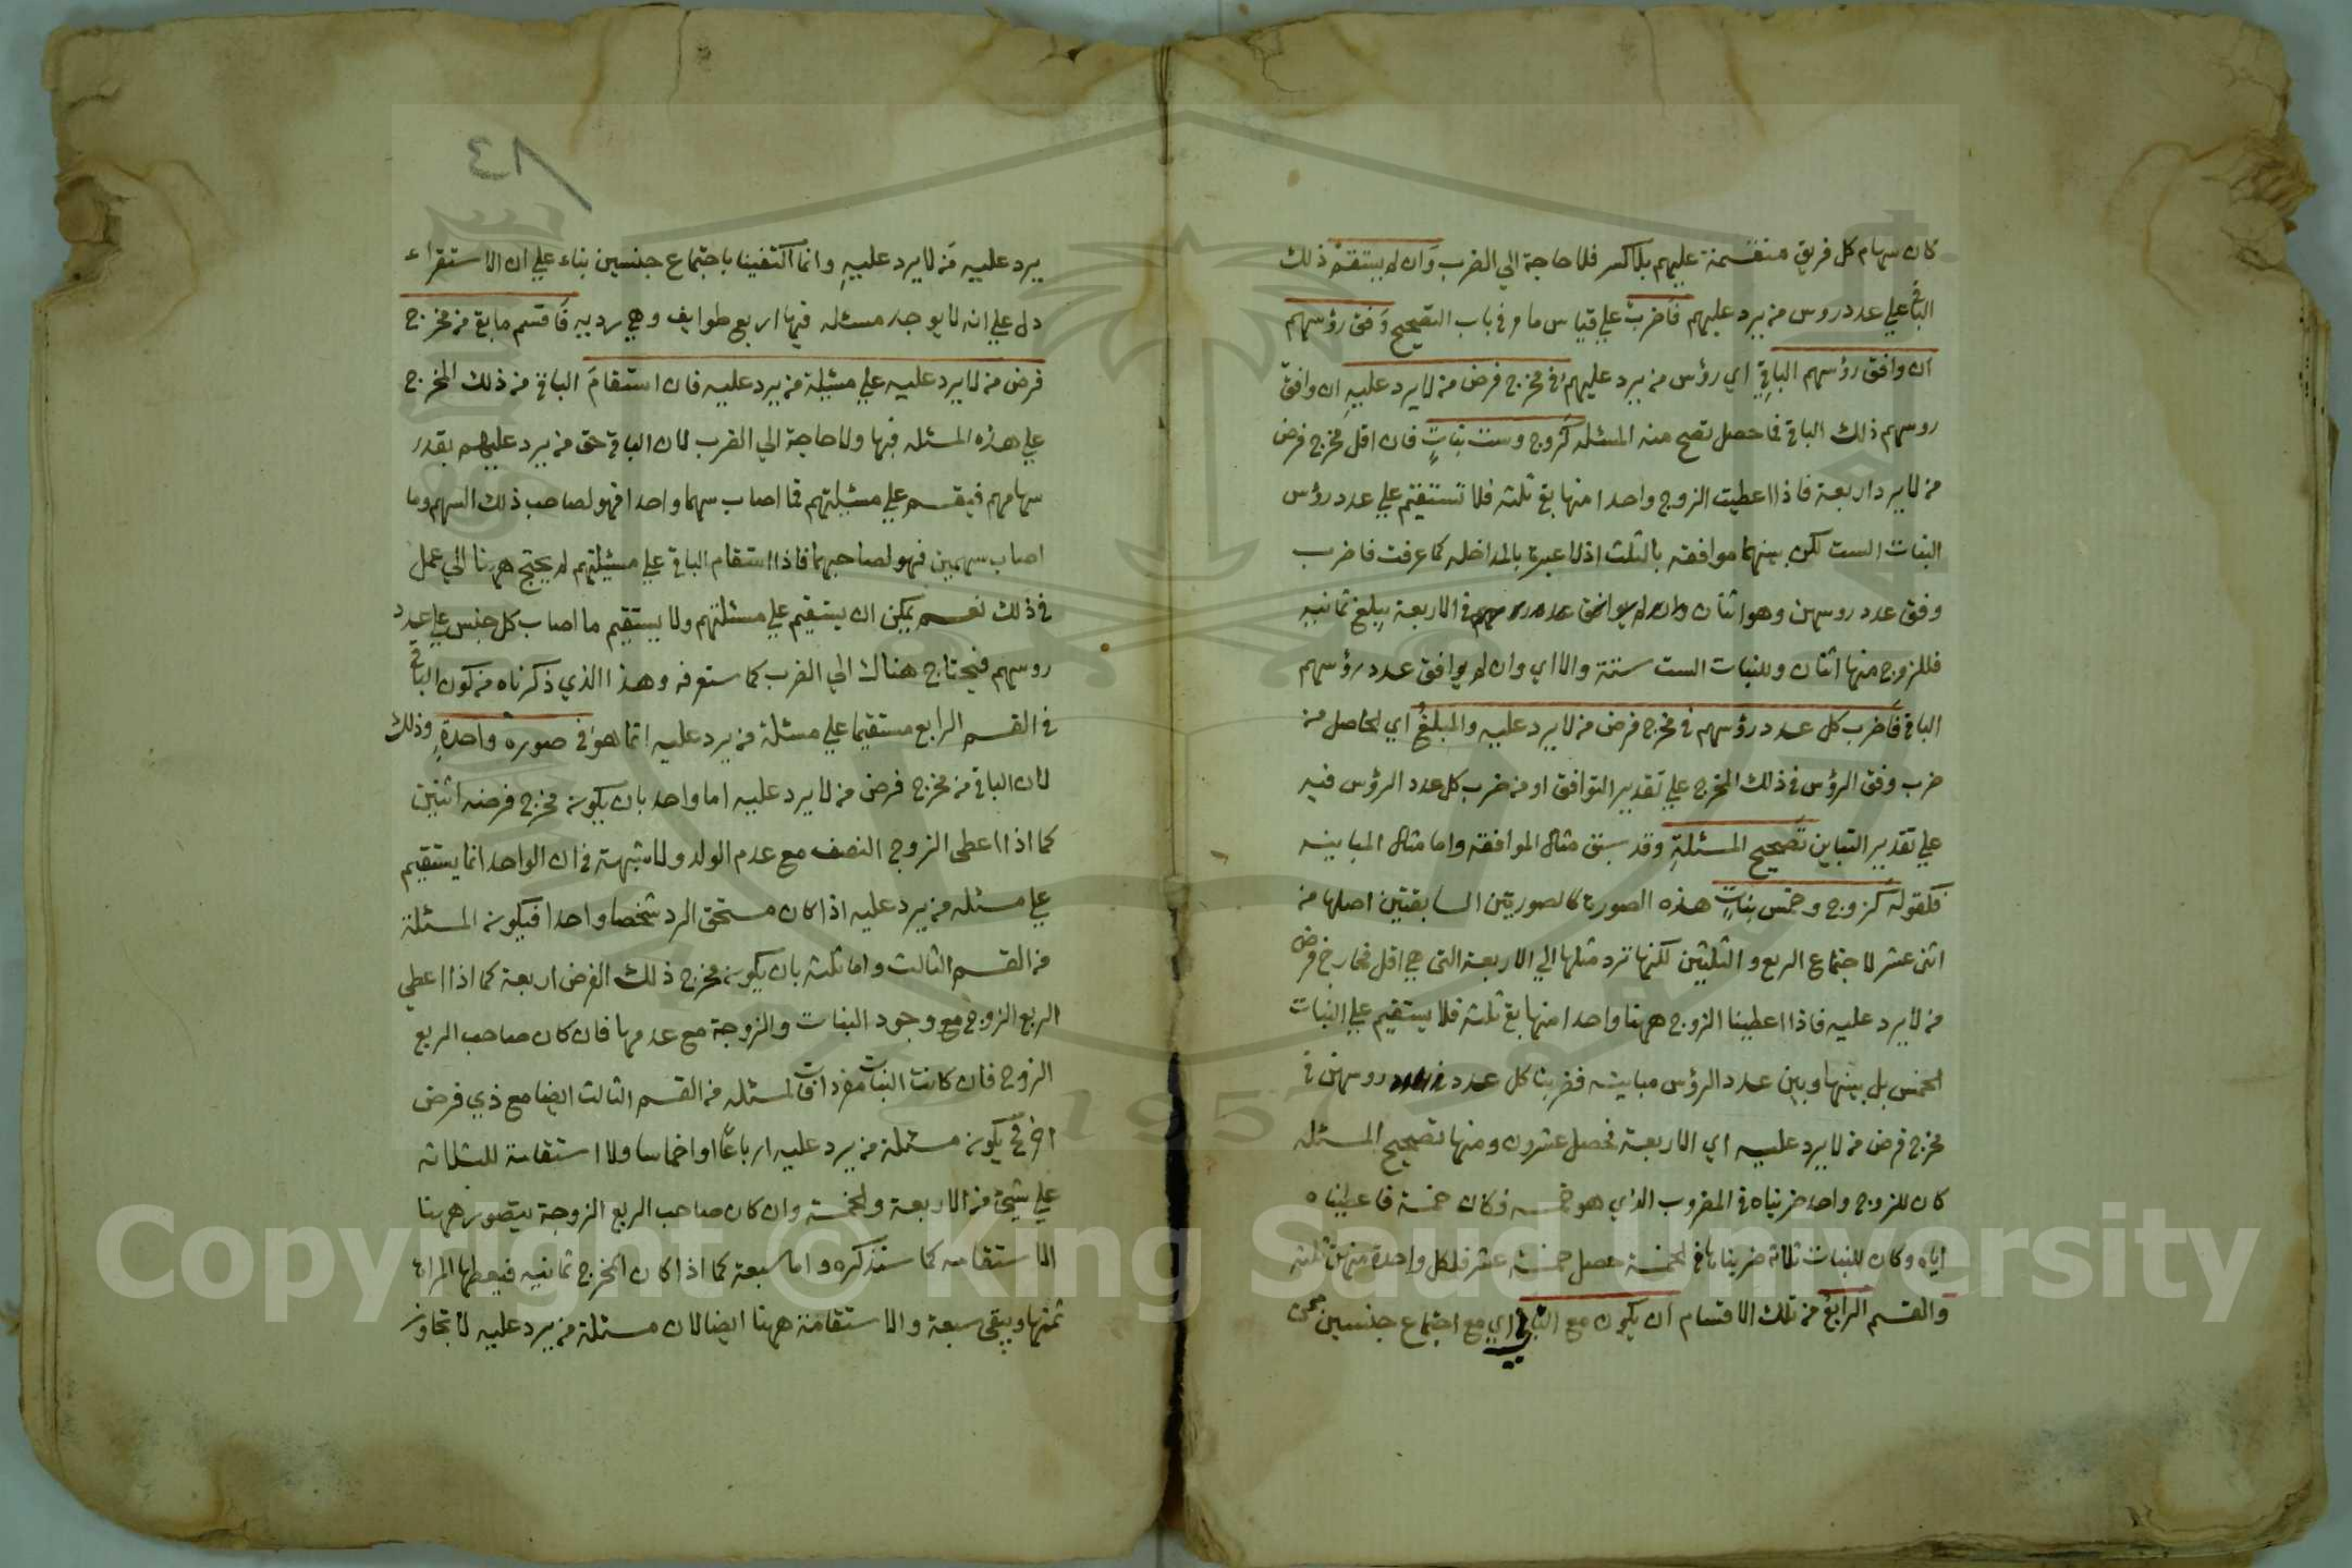 كان سهام كل فريق منقسمة عليهم بلا كسر فلا حاجة الي الضرب وان لم يستقم ذلك
الباقي علي عدد روس من يرد عليهم فاضرب علي قياس ما مر في باب التصحيح وفق رؤسهم
ان وافق رؤسهم الباقي اي رؤس من يرد عليهم في مخرج فرض من لا يرد عليه ان وافق
روسهم ذلك الباقي فما حصل تصح منه المسئله كزوج وست بنات فان اقل مخرج فرض
من لا يرد اربعة فاذا اعطيت الزوج واحدا منها بقي ثلثه فلا تستقيم علي عدد رؤس
البنات الست لكن بينهما موافقه بالثلث اذ لا عبرة بالمداخله كما عرفت فاضرب
وفق عدد روسهن وهو اثنان في الاربعة يبلغ ثمانيه
فللزوج منها اثنان وللبنات الست ستة والا اي وان لم يوافق عدد رؤسهم
الباقي فاضرب كل عدد رؤسهم في مخرج فرض من لا يرد عليه والمبلغ اي الحاصل من
ضرب وفق الرؤس في ذلك المخرج علي تقدير التوافق او من ضرب كل عدد الرؤس فيه
علي تقدير التباين تصحيح المسئلة وقد سبق مثال الموافقه واما مثال المباينه
فكقوله كزوج وخمس بنات هذه الصورة كالصورتين السابقتين اصلها من
اثني عشر لاجتماع الربع والثلثين لكنها ترد مثلها الي الاربعة التي هي اقل مخارج فرض
من لا يرد عليه فاذا اعطينا الزوج ههنا واحدا منها بقي ثلثه فلا يستقيم علي البنات
الخمس بل بينها وبين عدد الرؤس مباينه فضربنا كل عدد روسهن في
مخرج فرض من لا يرد عليه اي الاربعة فحصل عشرون ومنها تصحيح المسئله
كان للزوج واحد ضربناه في المضروب الذي هو خمسه فكان خمسة فاعطيناه
اياه وكان للبنات ثلاثة ضربناها في الخمسة حصل خمسة عشر فلكل واحدة منهن ثلثه
والقسم الرابع من تلك الاقسام ان يكون مع الثاني اي مع اجتماع جنسين ممن
٨٤
يرد عليه من لا يرد عليه وانما اكتفينا باجتماع جنسين بناء علي ان الاستقراء
دل علي انه لا يوجد مسئله فيها اربع طوايف وهي رديه فاقسم ما بقي من مخرج
فرض من لا يرد عليه علي مسئلة من يرد عليه فان استقام الباقي من ذلك المخرج
علي هذه المسئله فبها ولا حاجة الي الضرب لان الباقي حق من يرد عليهم بقدر
سهامهم فيقسم علي مسئلتهم فما اصاب سهما واحدا فهو لصاحب ذلك السهم وما
اصاب سهمين فهو لصاحبهما فاذا استقام الباقي علي مسئلتهم لم يحتج ههنا الي عمل
في ذلك نعم يمكن ان يستقيم علي مسئلتهم ولا يستقيم ما اصاب كل جنس علي عدد
روسهم فيحتاج هناك الي الضرب كما ستعرفه وهذا الذي ذكرناه من كون الباقي
في القسم الرابع مستقيما علي مسئلة من يرد عليه انما هو في صورة واحدة وذلك
لان الباقي من مخرج فرض من لا يرد عليه اما واحد بان يكون مخرج فرضه اثنين
كما اذا اعطي الزوج النصف مع عدم الولد ولا شبهة في ان الواحد انما يستقيم
علي مسئله من يرد عليه اذا كان مستحق الرد شخصا واحدا فيكون المسئلة
من القسم الثالث واما ثلثه بان يكون مخرج ذلك الفرض اربعة كما اذا اعطي
الربع الزوج مع وجود البنات والزوجة مع عدمها فان كان صاحب الربع
الزوج فان كانت البنات مفردات فالمسئله من القسم الثالث ايضا مع ذي فرض
اخر فح يكون مسئلة من يرد عليه ارباعا او اخماسا ولا استقامة للثلاثه
علي شيئ من الاربعة والخمسة وان كان صاحب الربع الزوجة يتصور ههنا
الاستقامه كما سنذكره واما سبعة كما اذا كان المخرج ثمانيه فيعطها المراة
ثمنها ويبقي سبعة والاستقامة ههنا ايضا لان مسئلة من يرد عليه لا تجاوز
Copyright © King Saud University
1957